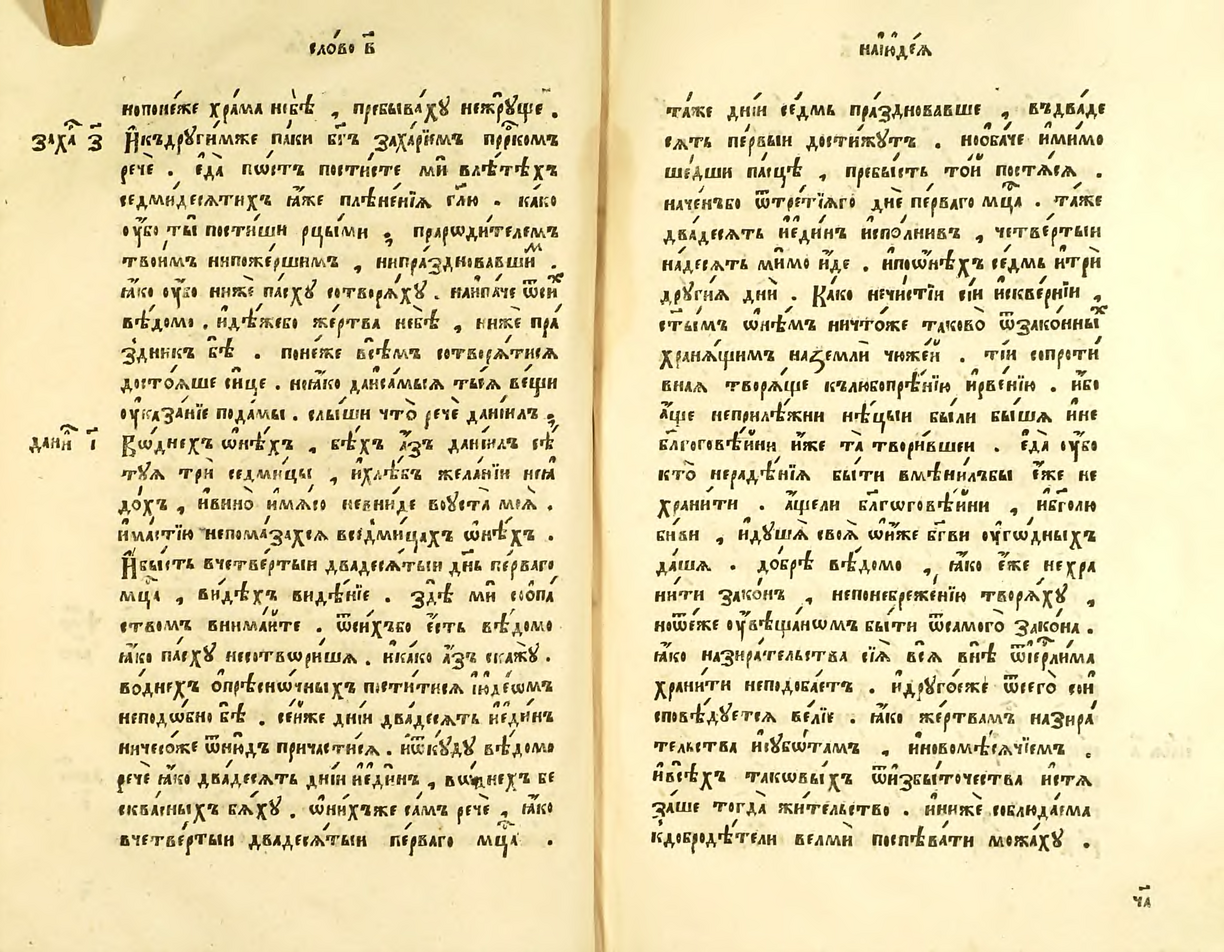 сло́во в҃
нопоне́же хра́ма неб̀ѣ , пребыва́хꙋ нежрꙋ́ще .
заха̑ з҃ И҆къдрꙋги́мже па́ки бг҃ъ заха́рїемъ прⷪ҇ркомъ
речѐ . є҆да̀ по́стъ пости́сте мѝ влѣ́тѣхъ
седмидесѧ́тихъ ꙗ҆́же плѣне́нїѧ гл҃ю . ка́ко
ᲂу҆́бо ты̀ пости́ши рцы́ми ; прарѡди́телемъ
твои́мъ нипоже́ршимъ , нипра́здновавшиⷨ .
ꙗ҆́ко ᲂу҆́бо нижѐ па́схꙋ сотворѧ́хꙋ . наипа́че ѿсиⷯ
вѣ́домо . и҆дѣ́жебо же́ртва небѣ̀ , нижѐ пра́
здникъ бѣ̀ . поне́же всѣ́мъ сотворѧ́тисѧ
досто́ѧше си́це . ноꙗ҆́ко дансамы́ѧ тыѧ̀ ве́щи
ᲂу҆каза́нїе пода́мы . слы́ши что̀ речѐ данїи́лъ ;
дани̑ і҃ Вѡ́днехъ ѡ҆́нѣхъ , бѣ́хъ а҆́зъ данїи́лъ сѣ́
тꙋѧ трѝ седми́цы , и҆хлѣ́бъ жела́нїи неꙗ҆
до́хъ , и҆вино̀ и҆мѧ́со невни́де воу҆ста̀ моѧ̀ .
и҆ма́стїю непома́захсѧ вседми́цахъ ѡ҆́нѣхъ .
И҆бы́сть вчетве́ртыи двадесѧ́тыи дн҃ь пе́рваго
мц҃а , ви́дѣхъ видѣ́нїе . здѣ̀ мѝ соопа́
ствомъ внима́йте . ѿси́хъбо є҆́сть вѣ́домо
ꙗ҆́ко па́схꙋ несотвѡри́шѧ . и҆ка́ко а҆́зъ скажꙋ̀ .
во́днехъ ѻ҆прѣсно́чныхъ пости́тисѧ і҆ꙋде́ѡмъ
неподо́бно бѣ̀ . се́йже дні́и два́десѧть и҆є҆ди́нъ
ничесо́же ѿню́дъ причасти́сѧ . и҆ѿкꙋ́дꙋ вѣ́домо
речѐ ꙗ҆́ко два́десѧть дні́и и҆є҆ди́нъ , вѡ́днехъ бе
сква́сныхъ бѧ́хꙋ . ѡ҆ни́хъже са́мъ речѐ , ꙗ҆́ко
вчетве́ртыи двадесѧ́тыи пе́рваго мц҃а .
наі҆ꙋде́ѧ
та́же дні́и се́дмь пра́здновавше , въдваде
сѧ́ть пе́рвыи дости́жꙋтъ . нѻ҆ба́че и҆мимо
ше́дши па́сцѣ , пребы́сть то́й постѧ́сѧ .
наче́нъбо ѿтре́тїѧго днѐ пе́рваго мц҃а . та́же
два́десѧть и҆є҆ди́нъ и҆спо́лнивъ , четве́ртыи
на́десѧть ми́мо и҆́де . и҆поѻ҆́нѣхъ се́дмь и҆трѝ
дрꙋгі́ѧ днѝ . Ка́ко нечи́стїи сі́и и҆скве́рнїи ,
ст҃ы́мъ ѡ҆́нѣмъ ничто́же таково̀ ѿзако́нныⷯ
хранѧ́щимъ наземлѝ чюже́й . ті́и сопроти́
внаѧ творѧ́ще кълюбопрѣ́нїю и҆рве́нїю . и҆́бо
а҆́ще неприлѣ́жни нѣ́цыи бы́ли бы́шѧ и҆не
бл҃гоговѣ́йни и҆́же та̀ твори́вшеи . є҆да̀ ᲂу҆́бо
кто̀ нерадѣ́нїѧ бы́ти вмѣни́лъбы є҆́же не
храни́ти . а҆́щели бл҃гѡговѣ́йни , и҆бг҃олю
би́ви , и҆дꙋ́шѧ своѧ̀ ѡ҆ни́же бг҃ви ᲂу҆го́дныхъ
да́шѧ . до́брѣ вѣ́домо , ꙗ҆́ко є҆́же нехра
ни́ти зако́нъ , непонебреже́нїю творѧ́хꙋ ,
ноѿе́же ᲂу҆вѣща́нѡмъ бы́ти ѿсамо́го зако́на .
ꙗ҆́ко назира́тельства сїѧ̀ всѧ̀ внѣ̀ ѿі҆ерⷭ҇ли́ма
храни́ти неподоба́етъ . и҆дрꙋго́еже ѿсего̀ сои
сповѣ́дꙋетсѧ ве́лїе . ꙗ҆́ко же́ртвамъ назира́
тельства и҆сꙋбѡ́тамъ , и҆новомⷭ҇ѣ́ѧчїемъ .
и҆всѣ́хъ таковы́хъ ѿи҆збы́точества и҆стѧ
за́ше тогда̀ жи́тельство . и҆нижѐ соблюда́ема
кдобродѣ́тели велмѝ поспѣва́ти можа́хꙋ .
ча҃